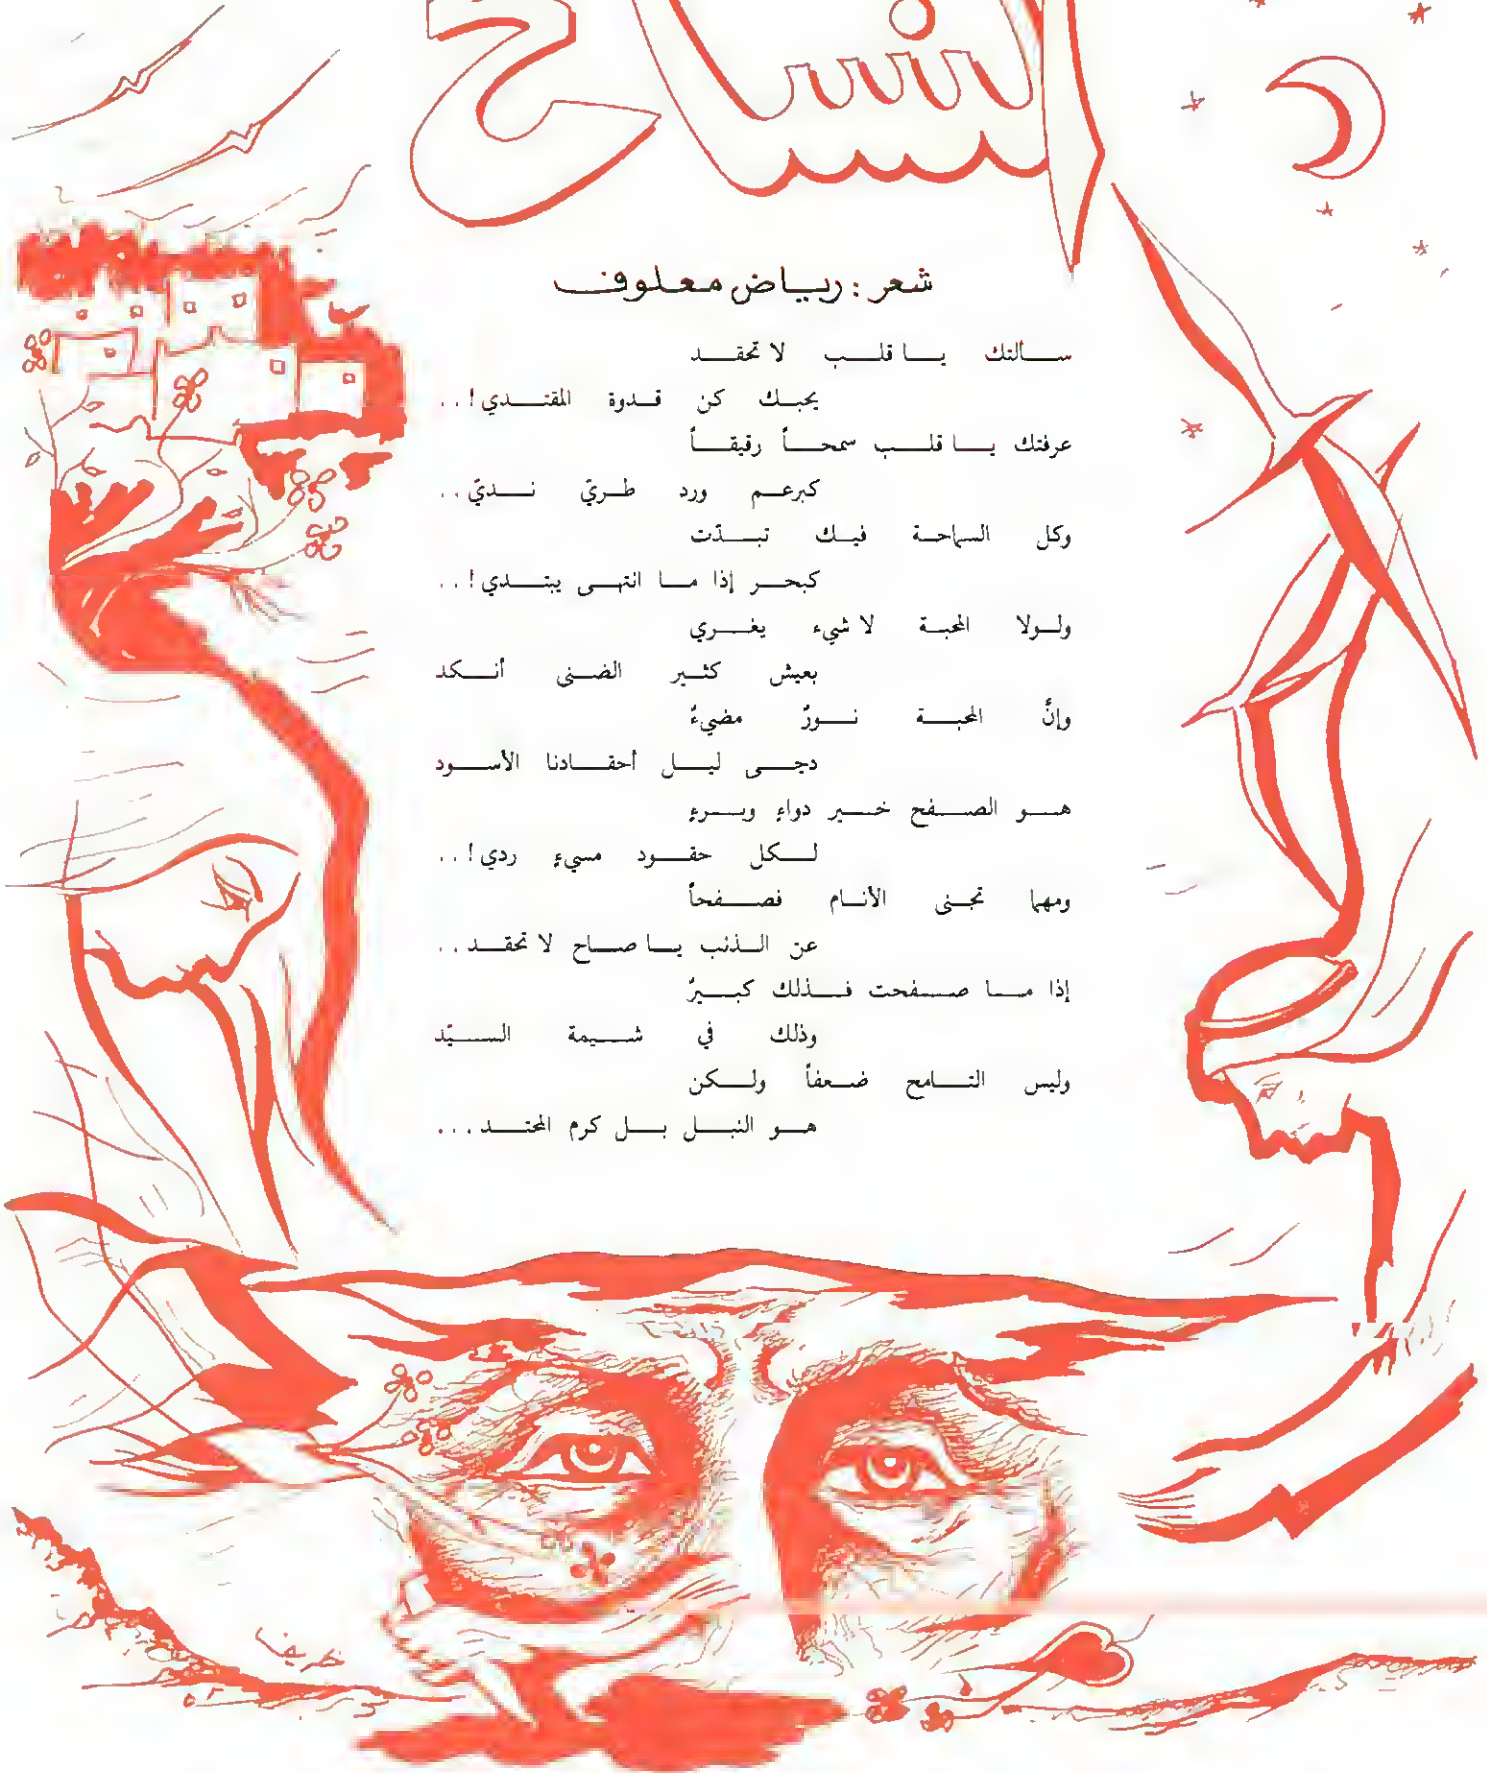 التسامح
شعر : رياض معلوف
سألتك يا قلب لا تحقد
يحبك كن قدوة المقتدي ! . .
عرفتك يا قلب سمحاً رقيقاً
كبرعم ورد طريّ نديّ . .
وكل السماحة فيك تبدّت
كبحر إذا ما انتهى يبتدي ! . .
ولولا المحبة لا شيء يغري
بعيش كثير الضنى أنكد
وإنَّ المحبة نورٌ مضيءٌ
دجى ليل أحقادنا الأسود
هو الصفح خير دواءٍ وبرءٍ
لكل حقود مسيءٍ ردي ! . .
ومهما تجنى الأنام فصفحاً
عن الذنب يا صاح لا تحقد . .
إذا ما صفحت فذلك كبيرٌ
وذلك في شيمة السيّد
وليس التسامح ضعفاً ولكن
هو النبل بل كرم المحتد . . .
ظريف